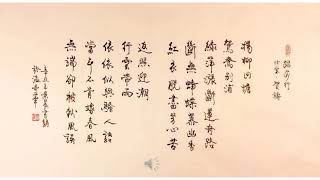 踏莎行
北宋 賀鑄
楊柳回塘
鴛鴦別浦
綠萍漲斷蓮舟路
斷無蜂蝶慕幽香
紅衣脫盡芳心苦
返照迎潮
行雲帶雨
依依似與騷人語
當年不肯嫁春風
無端卻被秋風誤
辛丑